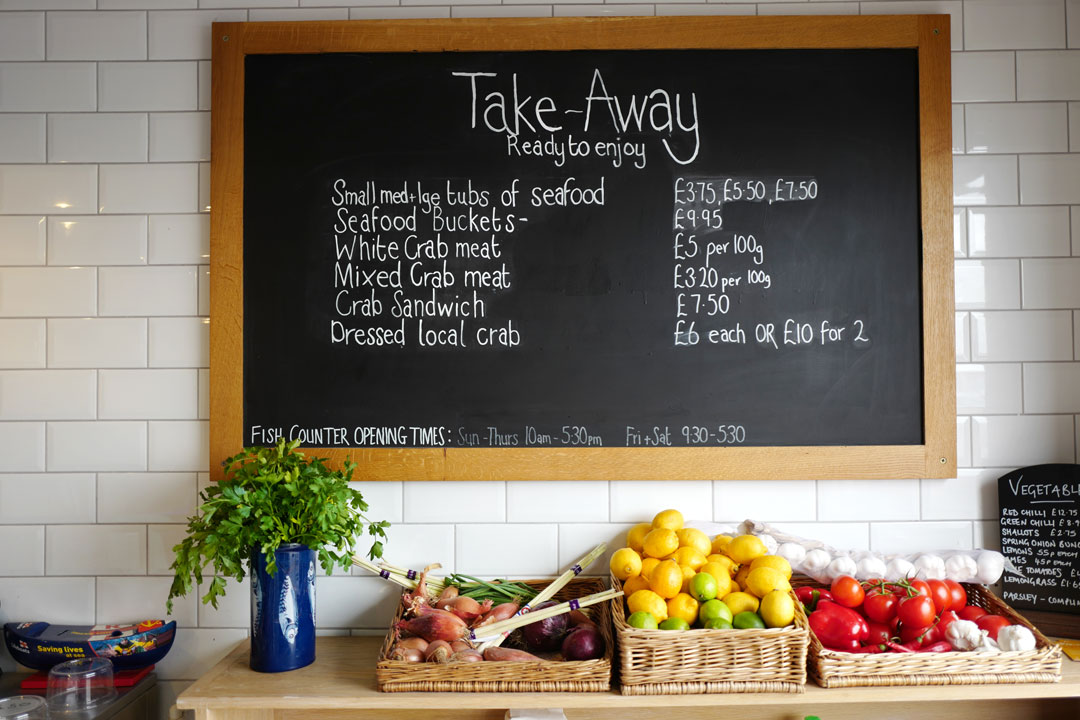 Take-Away
Ready to enjoy
Small med+lge tubs of seafood £3.75, £5.50, £7.50
Seafood Buckets- £9.95
White Crab meat £5 per 100g
Mixed Crab meat £3.20 per 100g
Crab Sandwich £7.50
Dressed local crab £6 each OR £10 for 2
FISH COUNTER OPENING TIMES: Sun-Thurs 10am-5.30pm Fri+Sat 9.30-5.30
VEGETABL
RED CHILLI £12.75
GREEN CHILLI £8.9
SHALLOTS £2.75
SPRING ONION BUN
LEMONS 55p EACH
LIMES 45p
TOMATOES £4
LEMONGRASS £1.6
PARSLEY - COMPLI
Saving lives
at sea